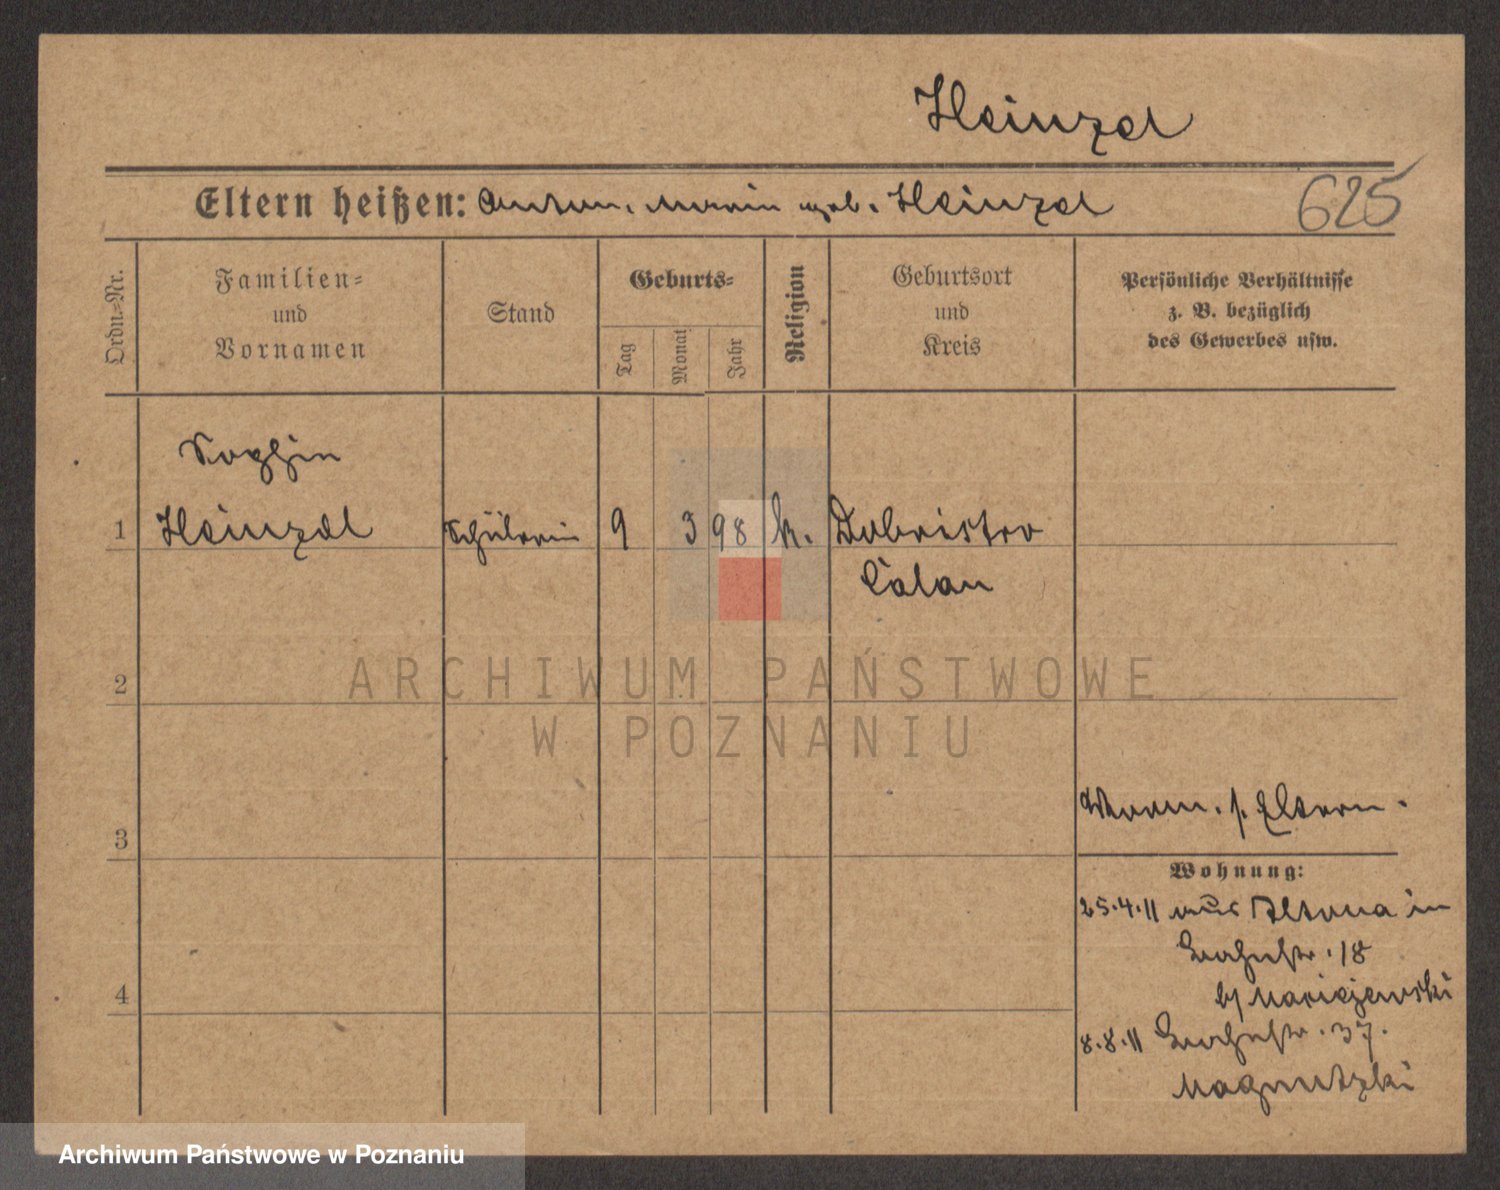 Heinzel
Eltern heißen: Anton. Marie geb. Heinzel
625
Ordn.-Nr.
Familien-
und
Vornamen
Stand
Geburts-
Tag
Monat
Jahr
Religion
Geburtsort
und
Kreis
Persönliche Verhältnisse
z. B. bezüglich
des Gewerbes usw.
Sophie
1 Heinzel Schülerin 9 3 98 k.
2
ARCHIWUM PAŃSTWOWE
W POZNANIU
3
Eltern.
Wohnung:
25.4.11 aus Altona in
18
b/ Maciejewski
4
8.8.11 37.
Archiwum Państwowe w Poznaniu